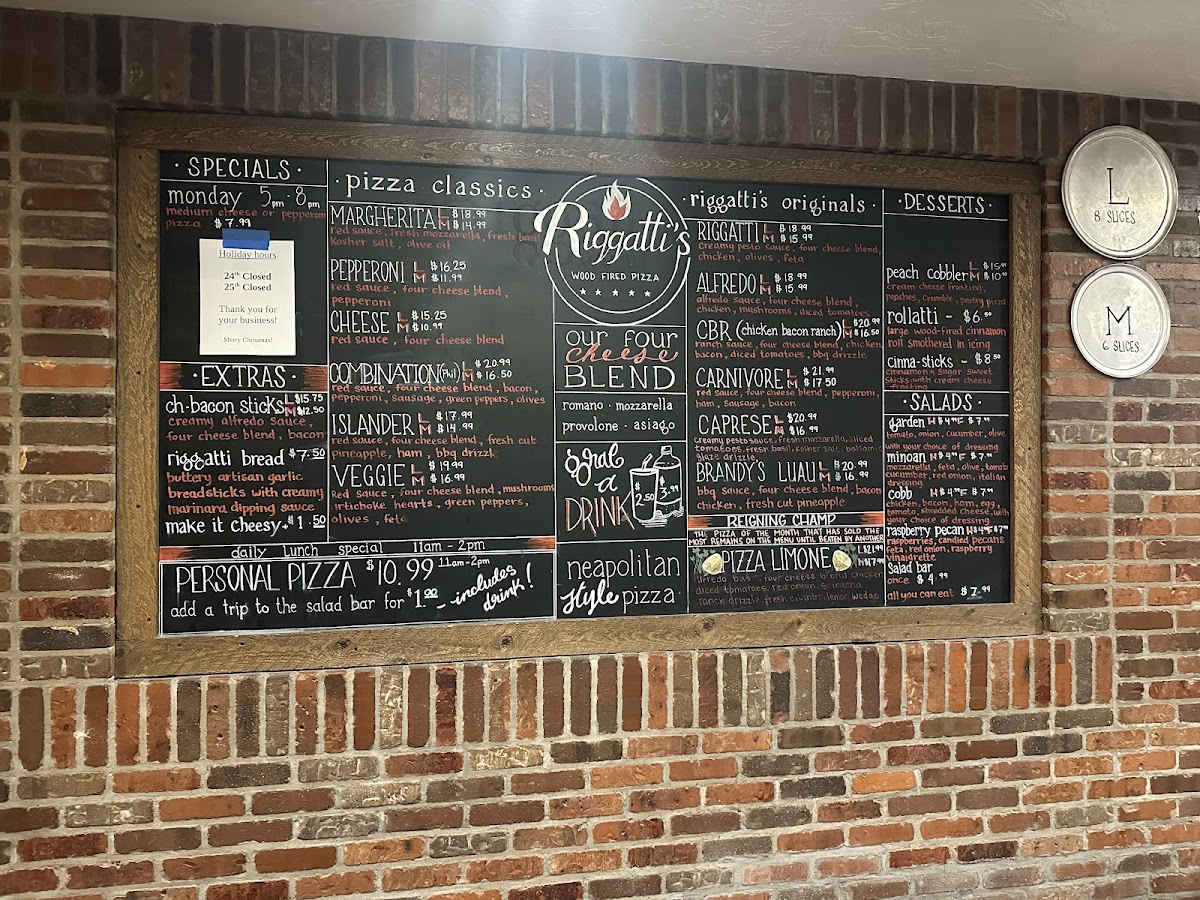 · SPECIALS ·
monday 5pm-8pm
medium cheese or pepperoni
pizza $7.99
Holiday hours
24th Closed
25th Closed
Thank you for
your business!
Merry Christmas!
· EXTRAS ·
ch-bacon sticks L $15.75
M $12.50
creamy alfredo sauce,
four cheese blend, bacon
riggatti bread $7.50
buttery artisan garlic
breadsticks with creamy
marinara dipping sauce
make it cheesy +$1.50
daily lunch special 11am-2pm
PERSONAL PIZZA $10.99 11am-2pm
add a trip to the salad bar for $1.00 - includes
drink!
· pizza classics ·
MARGHERITA L $18.99
M $14.99
red sauce, fresh mozzarella, fresh basil
Kosher salt, olive oil
PEPPERONI L $16.25
M $11.99
red sauce, four cheese blend,
pepperoni
CHEESE L $15.25
M $10.99
red sauce, four cheese blend
COMBINATION L $20.99
M $16.50
red sauce, four cheese blend, bacon,
pepperoni, sausage, green peppers, olives
ISLANDER L $17.99
M $14.99
red sauce, four cheese blend, fresh cut
pineapple, ham, bbq drizzle
VEGGIE L $19.99
M $16.99
Red sauce, four cheese blend, mushrooms
artichoke hearts, green peppers,
olives, feta
Riggatti's
WOOD FIRED PIZZA
our four
cheese
BLEND
romano · mozzarella
provolone · asiago
grab
a
DRINK
$2.50
$3.99
neapolitan
style pizza
· riggatti's originals ·
RIGGATTI L $18.99
M $15.99
Creamy pesto sauce, four cheese blend,
chicken, olives, feta
ALFREDO L $18.99
M $15.99
alfredo sauce, four cheese blend,
chicken, mushrooms, diced tomatoes
CBR (chicken bacon ranch) L $20.99
M $16.50
ranch sauce, four cheese blend, chicken
bacon, diced tomatoes, bbq drizzle
CARNIVORE L $21.99
M $17.50
red sauce, four cheese blend, pepperoni,
ham, sausage, bacon
CAPRESE L $20.99
M $16.99
creamy pesto sauce, fresh mozzarella, sliced
tomatoes, fresh basil, kosher salt, balsamic
glaze drizzle
BRANDY'S LUAU L $20.99
M $16.99
bbq sauce, four cheese blend, bacon
chicken, fresh cut pineapple
REIGNING CHAMP
THE PIZZA OF THE MONTH THAT HAS SOLD THE
MOST REMAINS ON THE MENU UNTIL BEATEN BY ANOTHER
PIZZA LIMONE L $21.99
M $17.99
alfredo base, four cheese blend, chicken
diced tomatoes, red onion, sriracha
ranch drizzle, fresh cilantro, lemon wedge
· DESSERTS ·
peach cobbler L
M
cream cheese frosting,
peaches, crumble, pastry pizza
rollatti - $6.50
large wood-fired cinnamon
roll smothered in icing
cinna-sticks - $8.50
cinnamon & sugar sweet
sticks with cream cheese
frosting
· SALADS ·
garden
tomato, onion, cucumber, olive
with your choice of dressing
minoan
mozzarella, feta, olive, tomato
cucumber, red onion, italian
dressing
cobb
chicken, bacon, ham, egg,
tomato, shredded cheese, with
your choice of dressing
raspberry pecan
raspberries, candied pecans
feta, red onion, raspberry
vinaigrette
Salad bar
once $4.99
all you can eat $7.99
L
8 SLICES
M
6 SLICES